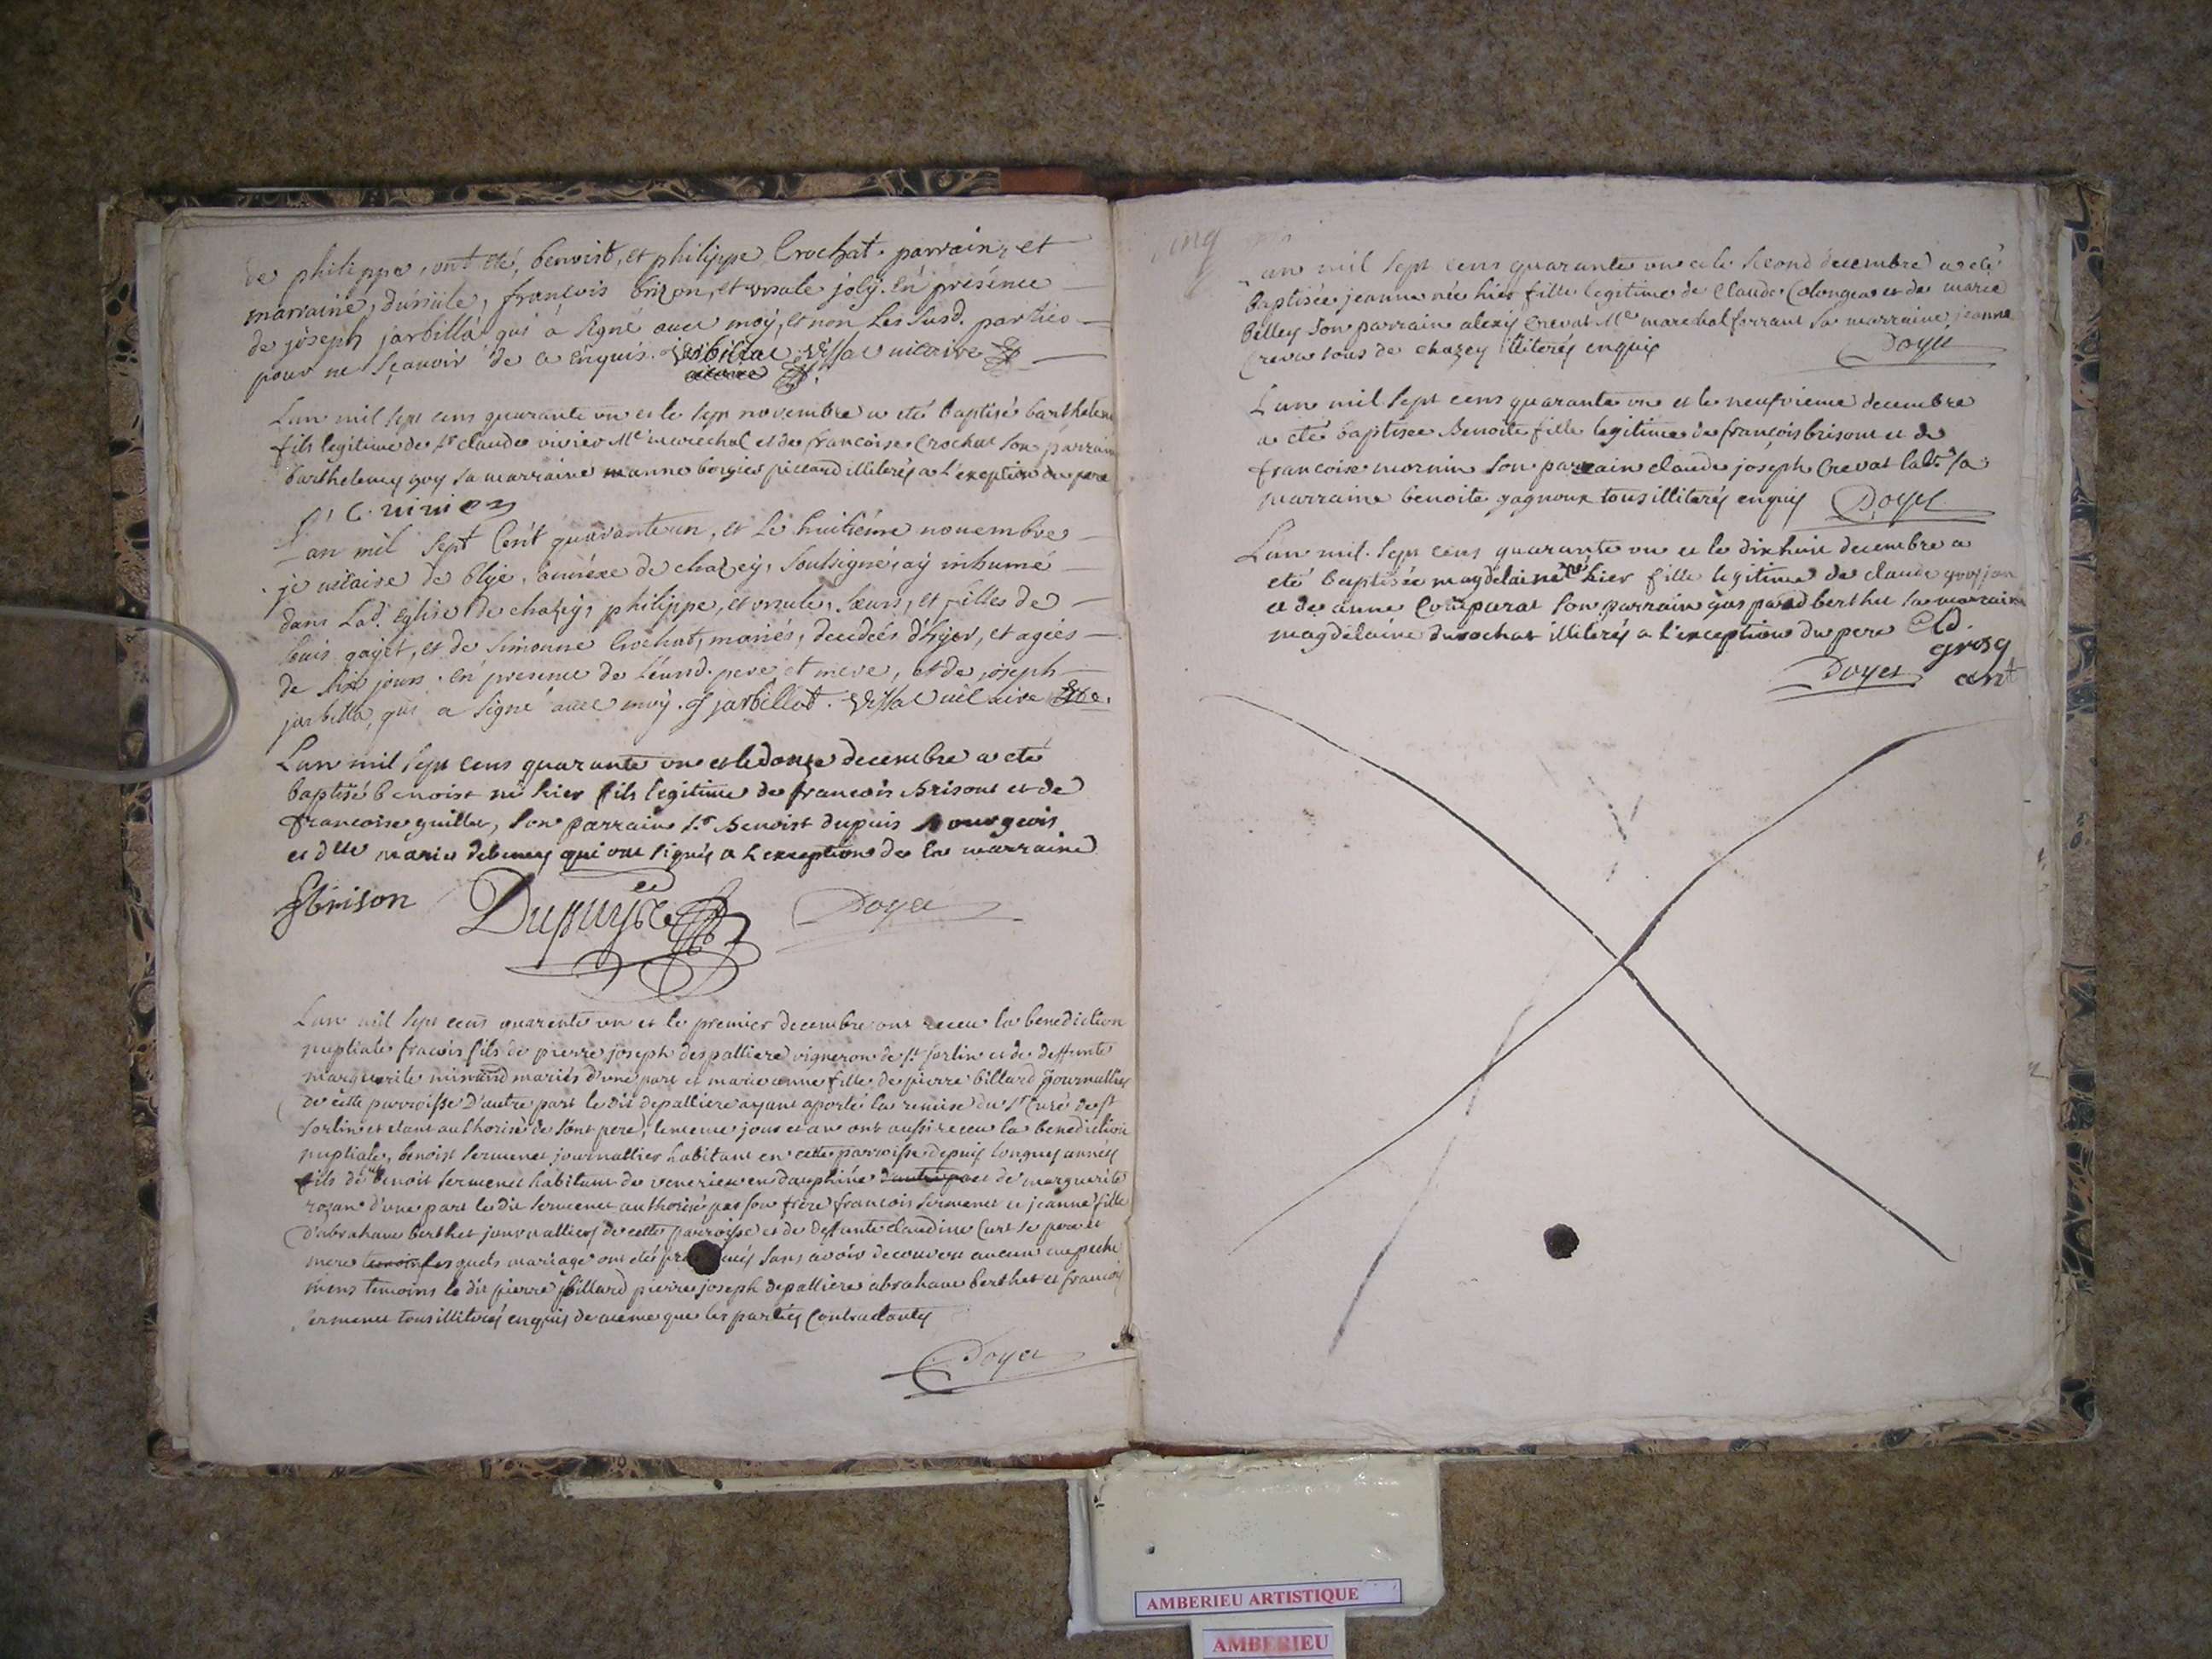 de philippe, ont eté, benoist, et philippe Crochat. parrain, et
marraine, d'ursule, françois brison, et ursule joly. En présence
de joseph jarbillà qui a signé avec moy, et non les susd. parties
pour ne sçavoir de ce enquis. vicaire
Lan mil sept cens quarante un et le sept novembre a eté baptisé barthelemi
fils legitime de Sr claude vivier Me marechal et de francoise Crochat son parrain
barthelemy guy sa marraine manne borgier pittard illiterés a l'exception du pere
C. vivier
L'an mil sept Cent quarante un, et le huitiéme novembre
je vicaire de blye, annéxe de chazey, soussigné, ay inhumé
dans Lad. eglise de chazey, philippe, et ursule, sœurs, et filles de
louis gayet, et de Simonne Crochat, mariés, decedées d'hyer, et agées
de six jours. en presence de Leursd. pere et mere, et de joseph
jarbilla, qui a signé avec moy. J jarbillat. vicaire
Lan mil sept cens quarante un et le donze decembre a eté
baptisé benoist né hier fils legitime de francois Brisont et de
francoise guillet, son parrain Sr. Benoist dupuis Bourgeois
et dlle marie debeney qui ont signés a l'exception de la marraine
f brison Dupuys Doyet
Lan mil sept cens quarente un et le premier decembre ont receu la benediction
nuptiale fracois fils de pierre joseph despalliere vigneron de St Sorlin et de deffunte
marguerite minand mariés d'une part et marie anne fille de pierre billard journallier
de cette parroisse d'autre part le dit depalliere ayant aporté la remise du Sr Curé de St
Sorlin et etant authorisé de sont pere, le meme jour et an ont aussi receu la benediction
nuptiale, benoist sermenet journallier habitant en cette parroisse depuis longues années
fils de benoit sermenet habitant de venerieu en dauphiné et de marguerite
rozan d'une part le dit sermenet authorisé par son frere francois sermenet et jeanne fille
d'abraham berthet journallier de cette parroisse et de deffunte claudine Curt se pere et
mere lesquels mariage ont eté sans avoir decouvert aucun empeche
mens temoins le dit pierre billard pierre joseph depalliere abraham berthet et francois
sermenet tous illiterés enquis de meme que les parties Contractantes
Doyet
an mil sept cens quarante un et le second decembre a eté
Baptisée jeanne née hier fille legitime de Claude Colongea et de marie
Belley son parrain alexis Crevat Me marechal ferrant sa marraine jeanne
Creva tous de chazey illiterés enquis Doyet
Lan mil sept cens quarante un et le neufvieme decembre
a eté baptisee Benoite fille legitime de françois brisont et de
francoise mornin son parrain claude joseph Crevat labr. sa
marraine benoite gagnoux tous illiterés enquis Doyet
Lan mil sept cens quarante un et le dixhuit decembre a
eté baptisée magdelaine née hier fille legitime de claude grosjan
et de anne Comparat son parrain gaspard berthet sa marraine
magdelaine durochat illiterés a l'exception du pere Cld.
grosg
Doyet ant
AMBERIEU ARTISTIQUE
AMBERIEU